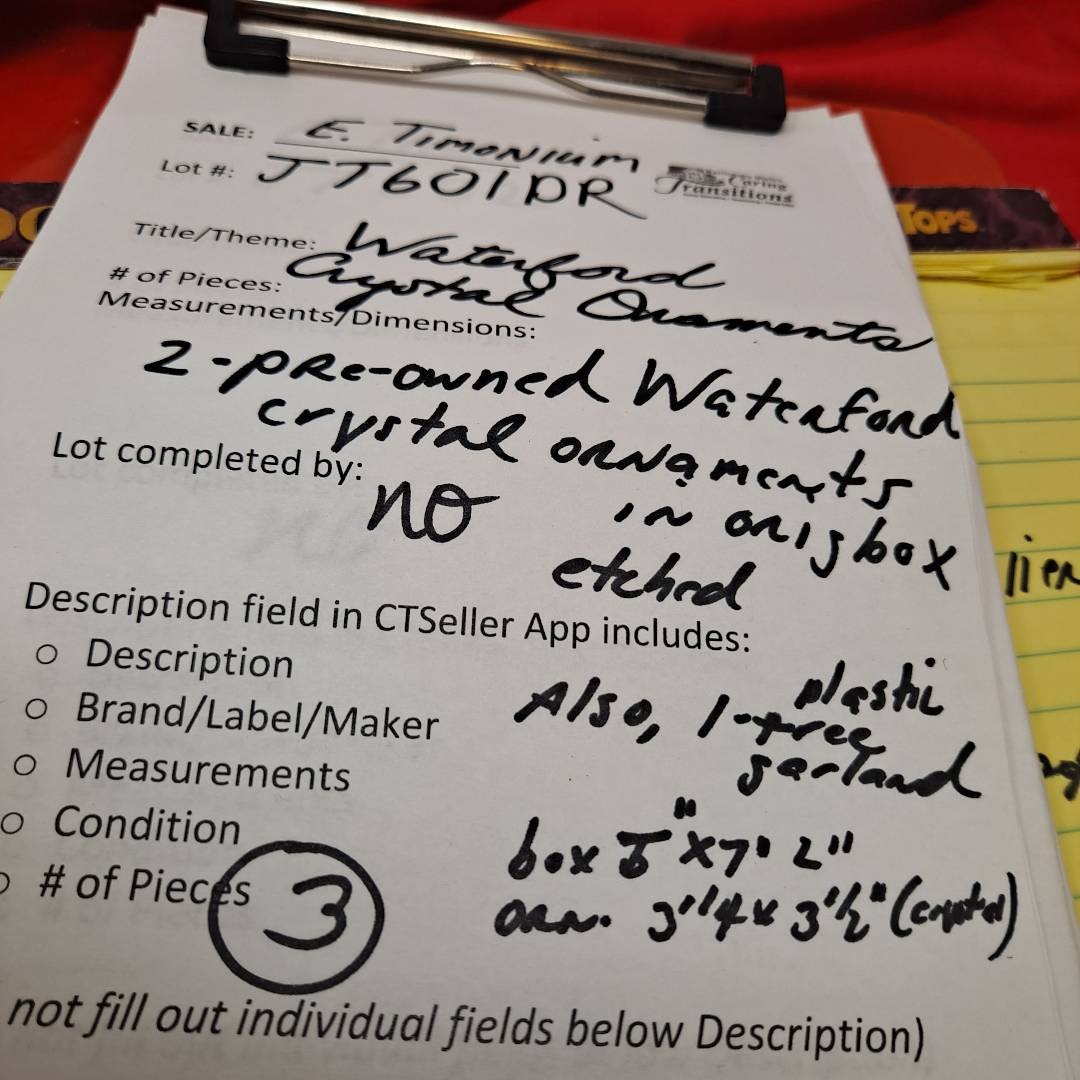 SALE: E. TIMONIUM
Lot #: JT601DR
Caring
Transitions
TOPS
Title/Theme: Waterford
# of Pieces: Crystal Ornaments
Measurements/Dimensions:
2-pre-owned Waterford
crystal ornaments
Lot completed by: no
in orig box
etched
Description field in CTSeller App includes:
Description
Brand/Label/Maker
Measurements
Condition
# of Pieces 3
Also, 1-tree plastic
garland
box
orn. 3 1/4 x 3 1/2" (crystal)
not fill out individual fields below Description)